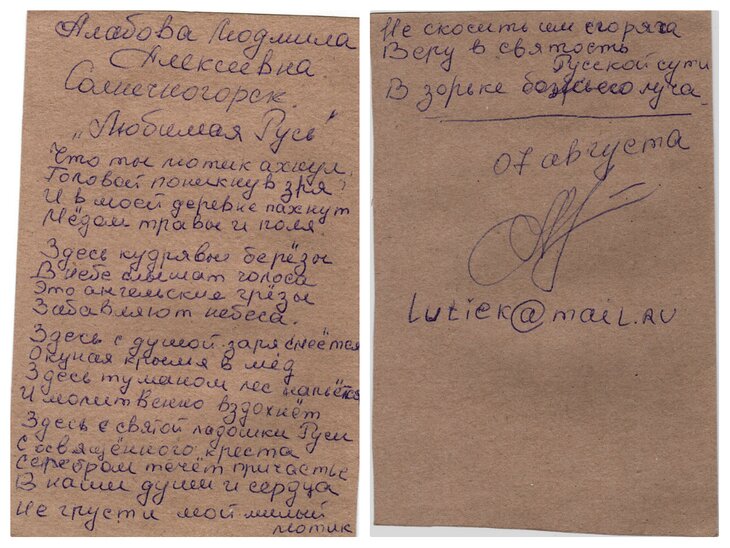 Алабова Людмила
Алексеевна.
Солнечногорск.
„Любимая Русь"
Что ты лютик ахнул,
Головой поникнув зря?
И в моей деревне пахнут
Мёдом травы и поля.
Здесь кудрявые берёзы
В небе слышат голоса
Это ангельские грёзы
Забавляют небеса.
Здесь с душой заря смеётся
Окуная крылья в мёд
Здесь туманом лес напьётся
И молитвенно вздохнёт
Здесь с святой ладошки Руси
С освящённого креста
Серебром течёт причастье
В наши души и сердца
Не грусти мой милый
лютик
Не скосить им сгоряча
Веру в святость
Русской сути
В зорьке божьего луча.
07 августа
lutiek@mail.ru